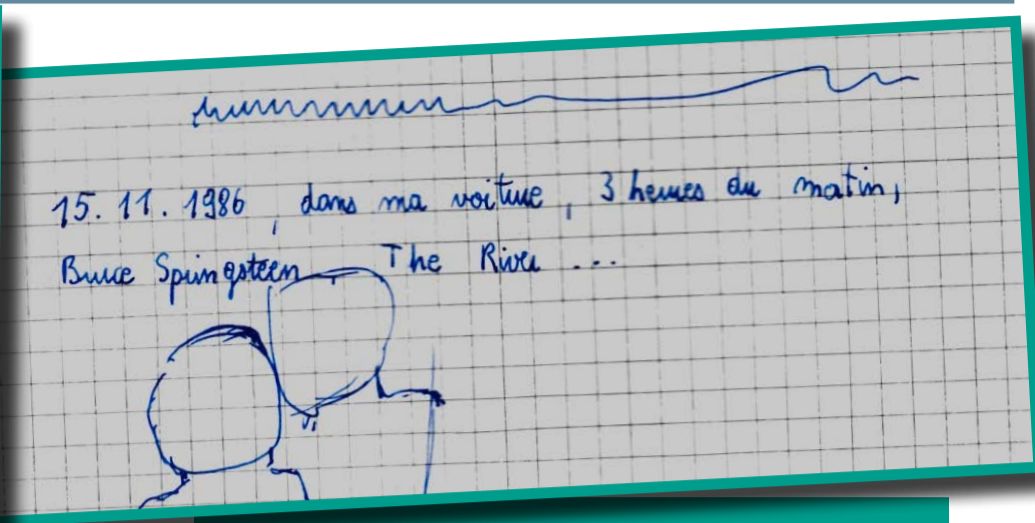 15.11.1986, dans ma voiture, 3 heures du matin,
Bruce Springsteen The River ...